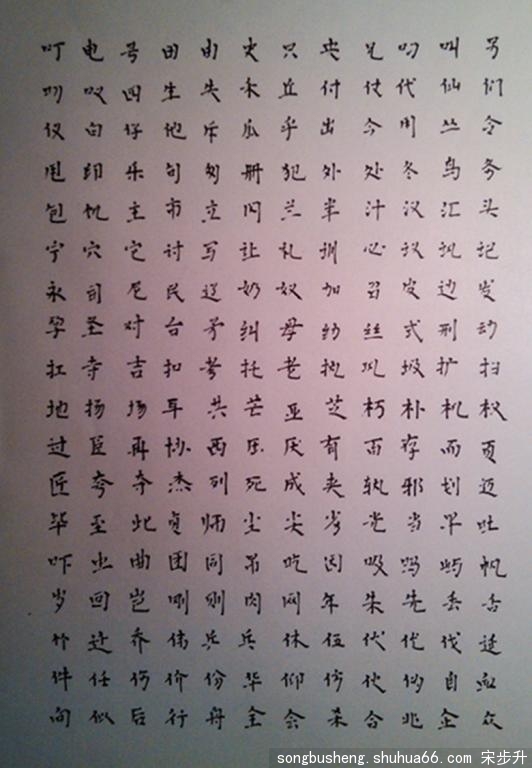 叮 电 号 田 由 史 只 央 兄 叼 叫 另
叨 叹 四 生 失 禾 丘 付 仗 代 仙 们
仪 白 仔 他 斥 瓜 乎 出 今 用 丛 令
甩 印 乐 句 匆 册 犯 外 处 冬 鸟 务
包 饥 主 市 立 闪 兰 半 汁 汉 汇 头
宁 穴 它 讨 写 让 礼 训 必 议 讯 记
永 司 尼 民 辽 奶 奴 加 召 皮 边 发
孕 圣 对 台 矛 纠 母 幼 丝 式 刑 动
扛 寺 吉 扣 考 托 老 执 巩 圾 扩 扫
地 扬 场 耳 共 芒 亚 芝 朽 朴 机 权
过 臣 再 协 西 压 厌 有 百 存 而 页
匠 夸 夺 杰 列 死 成 夹 轨 邪 划 迈
毕 至 此 贞 师 尘 尖 劣 光 当 早 吐
吓 虫 曲 团 同 吊 吃 因 吸 吗 屿 帆
岁 回 岂 刚 则 肉 网 年 朱 先 丢 舌
竹 迁 乔 伟 乒 乓 休 伍 伏 优 伐 延
件 任 伤 价 份 华 仰 仿 伙 伪 自 血
向 似 后 行 舟 全 会 杀 合 兆 企 众
songbusheng.shuhua66.com 宋步升